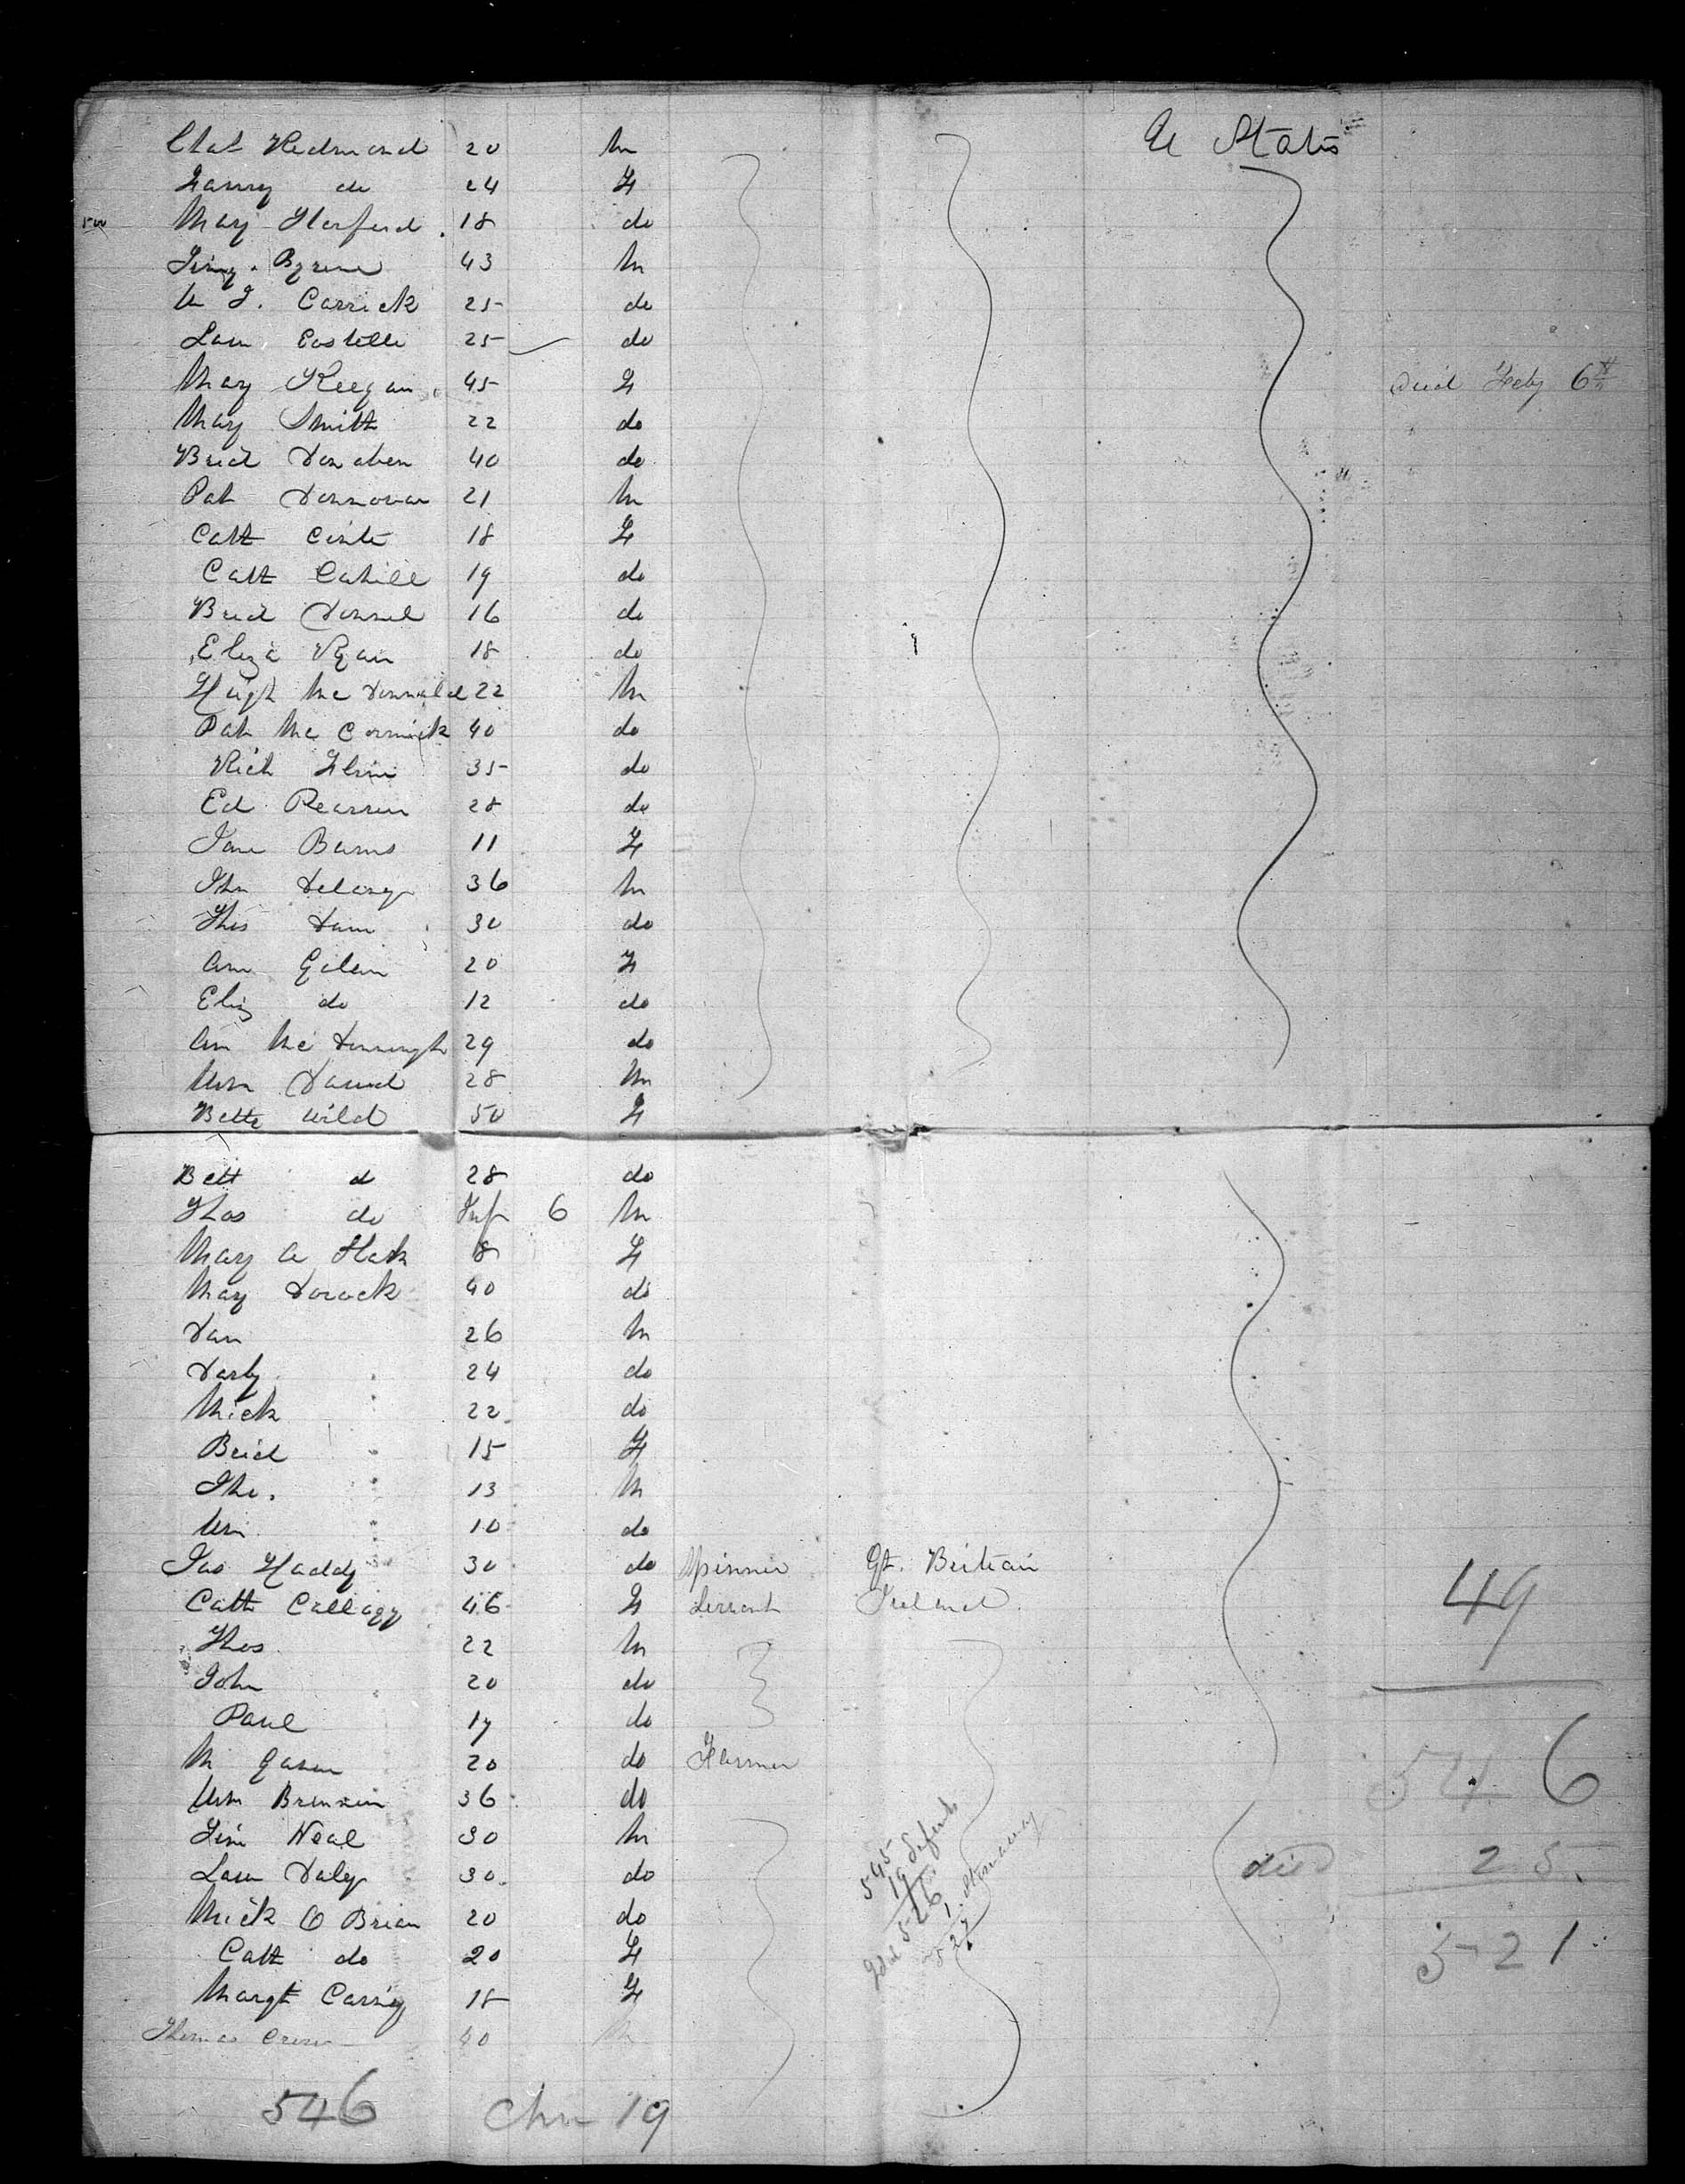 U States
Redmond 20 M
Fanny do 24 F
500 Mary 18 do
Byrne 43 M
Carrick 25 do
Costello 25 do
Mary Keegan 45 F Died Feby 6th
Mary Smith 22 do
Brid Donahen 40 do
Pat Donnovan 21 M
Cath 18 F
Cath Cahill 19 do
Brid Donnel 16 do
Eliza Ryan 18 do
Hugh Mc Donnald 22 M
Pat Mc Cormick 40 do
Rich Flinn 35 do
Ed 28 do
Jane Burns 11 F
Jhn Delaney 36 M
Thos 30 do
Ann 20 F
Eliz do 12 do
Ann Mc 29 do
Wm 28 M
Bette Wild 50 F
Bett d 28 do
Thos do Inf 6 M
Mary A 8 F
Mary 40 do
Dan 26 M
Darby 24 do
Mick 22 do
Brid 15 F
Jho. 13 M
Wm 10 do
Jas Haddy 30 do Spinner Gt. Britain
Cath Callagy 46 F Servant Ireland
49
Thos 22 M
John 20 do
Paul 17 do
M 20 do Farmer
546
Wm Brennin 36 do
Jim Neal 30 M
Law Daly 30 do died 25
Mick O Brian 20 do
521
Cath do 20 F
Margt 18 F
Thomas 40 M
545
19
526
1 Stowaway
527
546 Chn 19